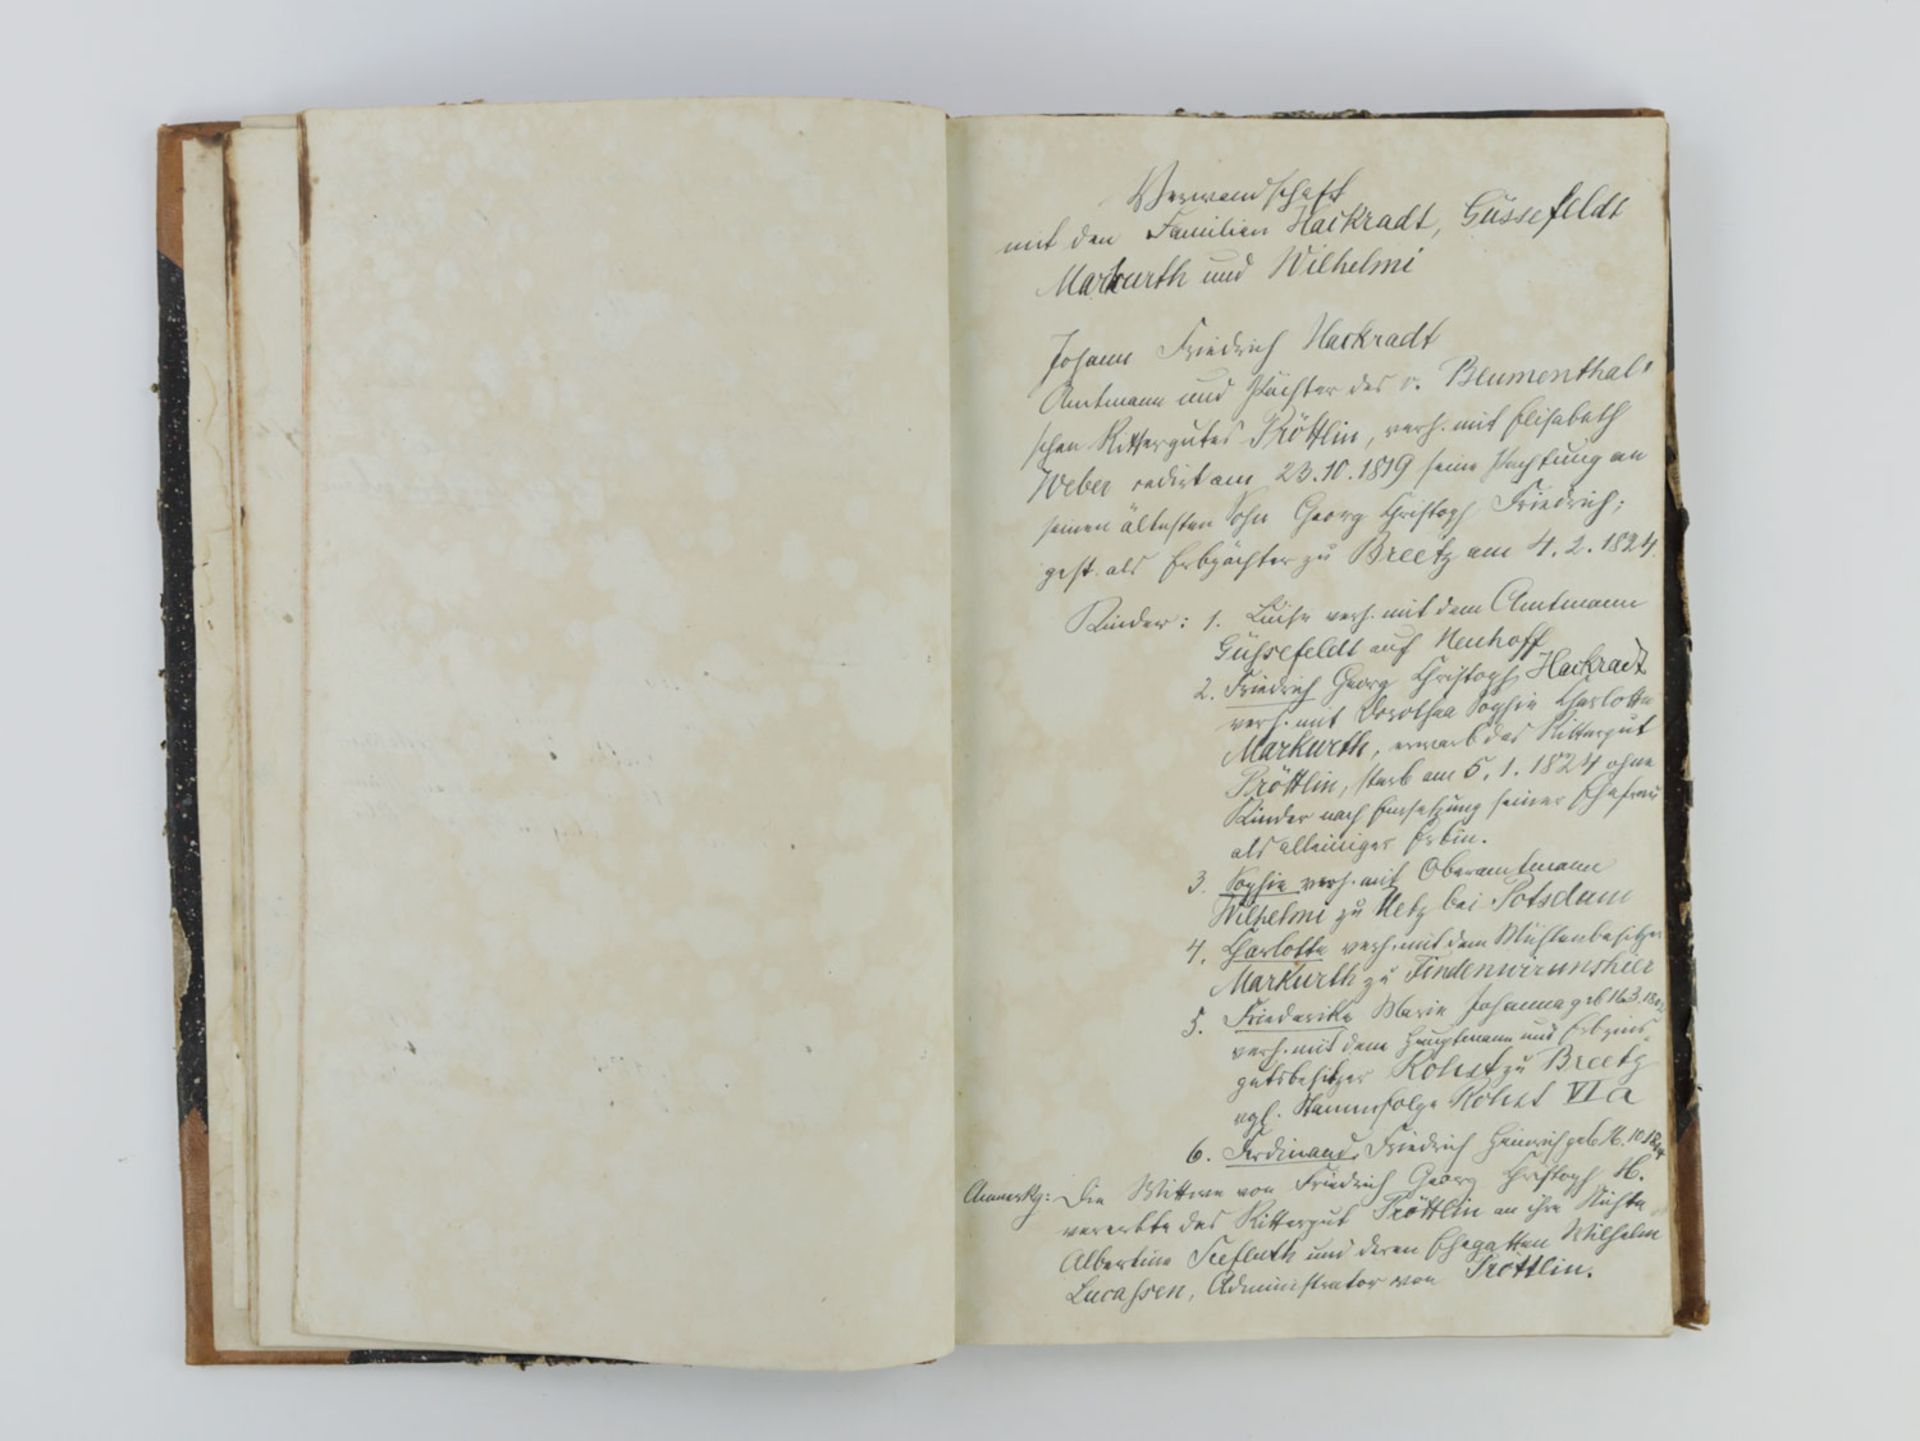 Verwandschaft
mit den Familien Hackradt, Güssefeldt
Markurth und Wilhelmi
Johann Friedrich Hackradt
Amtmann und Pächter des v. Blumenthal'
schen Rittergutes Pröttlin, verh. mit Elisabeth
Weber cedirt am 23.10.1819 seine Pachtung an
seinen ältesten Sohn Georg Christoph Friedrich;
gest. als Erbpächter zu Breetz am 4.2.1824.
Kinder: 1. Luise verh. mit dem Amtmann
Güssefeldt auf Neuhoff
2. Friedrich Georg Christoph Hackradt
verh. mit Dorothea Sophie Charlotte
Markurth, erwarb das Rittergut
Pröttlin, starb am 5.1.1824 ohne
Kinder nach Einsetzung seiner Ehefrau
als alleiniger Erbin.
3. Sophie verh. mit Oberamtmann
Wilhelmi zu Uetz bei Potsdam
4. Charlotte verh. mit dem Mühlenbesitzer
Markurth zu
5. Friederike Marie Johanna geb
verh. mit dem Hauptmann und Erbzins
gutsbesitzer Kohst zu Breetz
vgl. Stammfolge Kohst VI a
6. Ferdinand Friedrich Heinrich geb
Anmerkg: Die Wittwe von Friedrich Georg Christoph H.
vererbte das Rittergut Pröttlin an ihre Nichte
Albertine und deren Ehegatten Wilhelm
Lucassen, Administrator von Pröttlin.